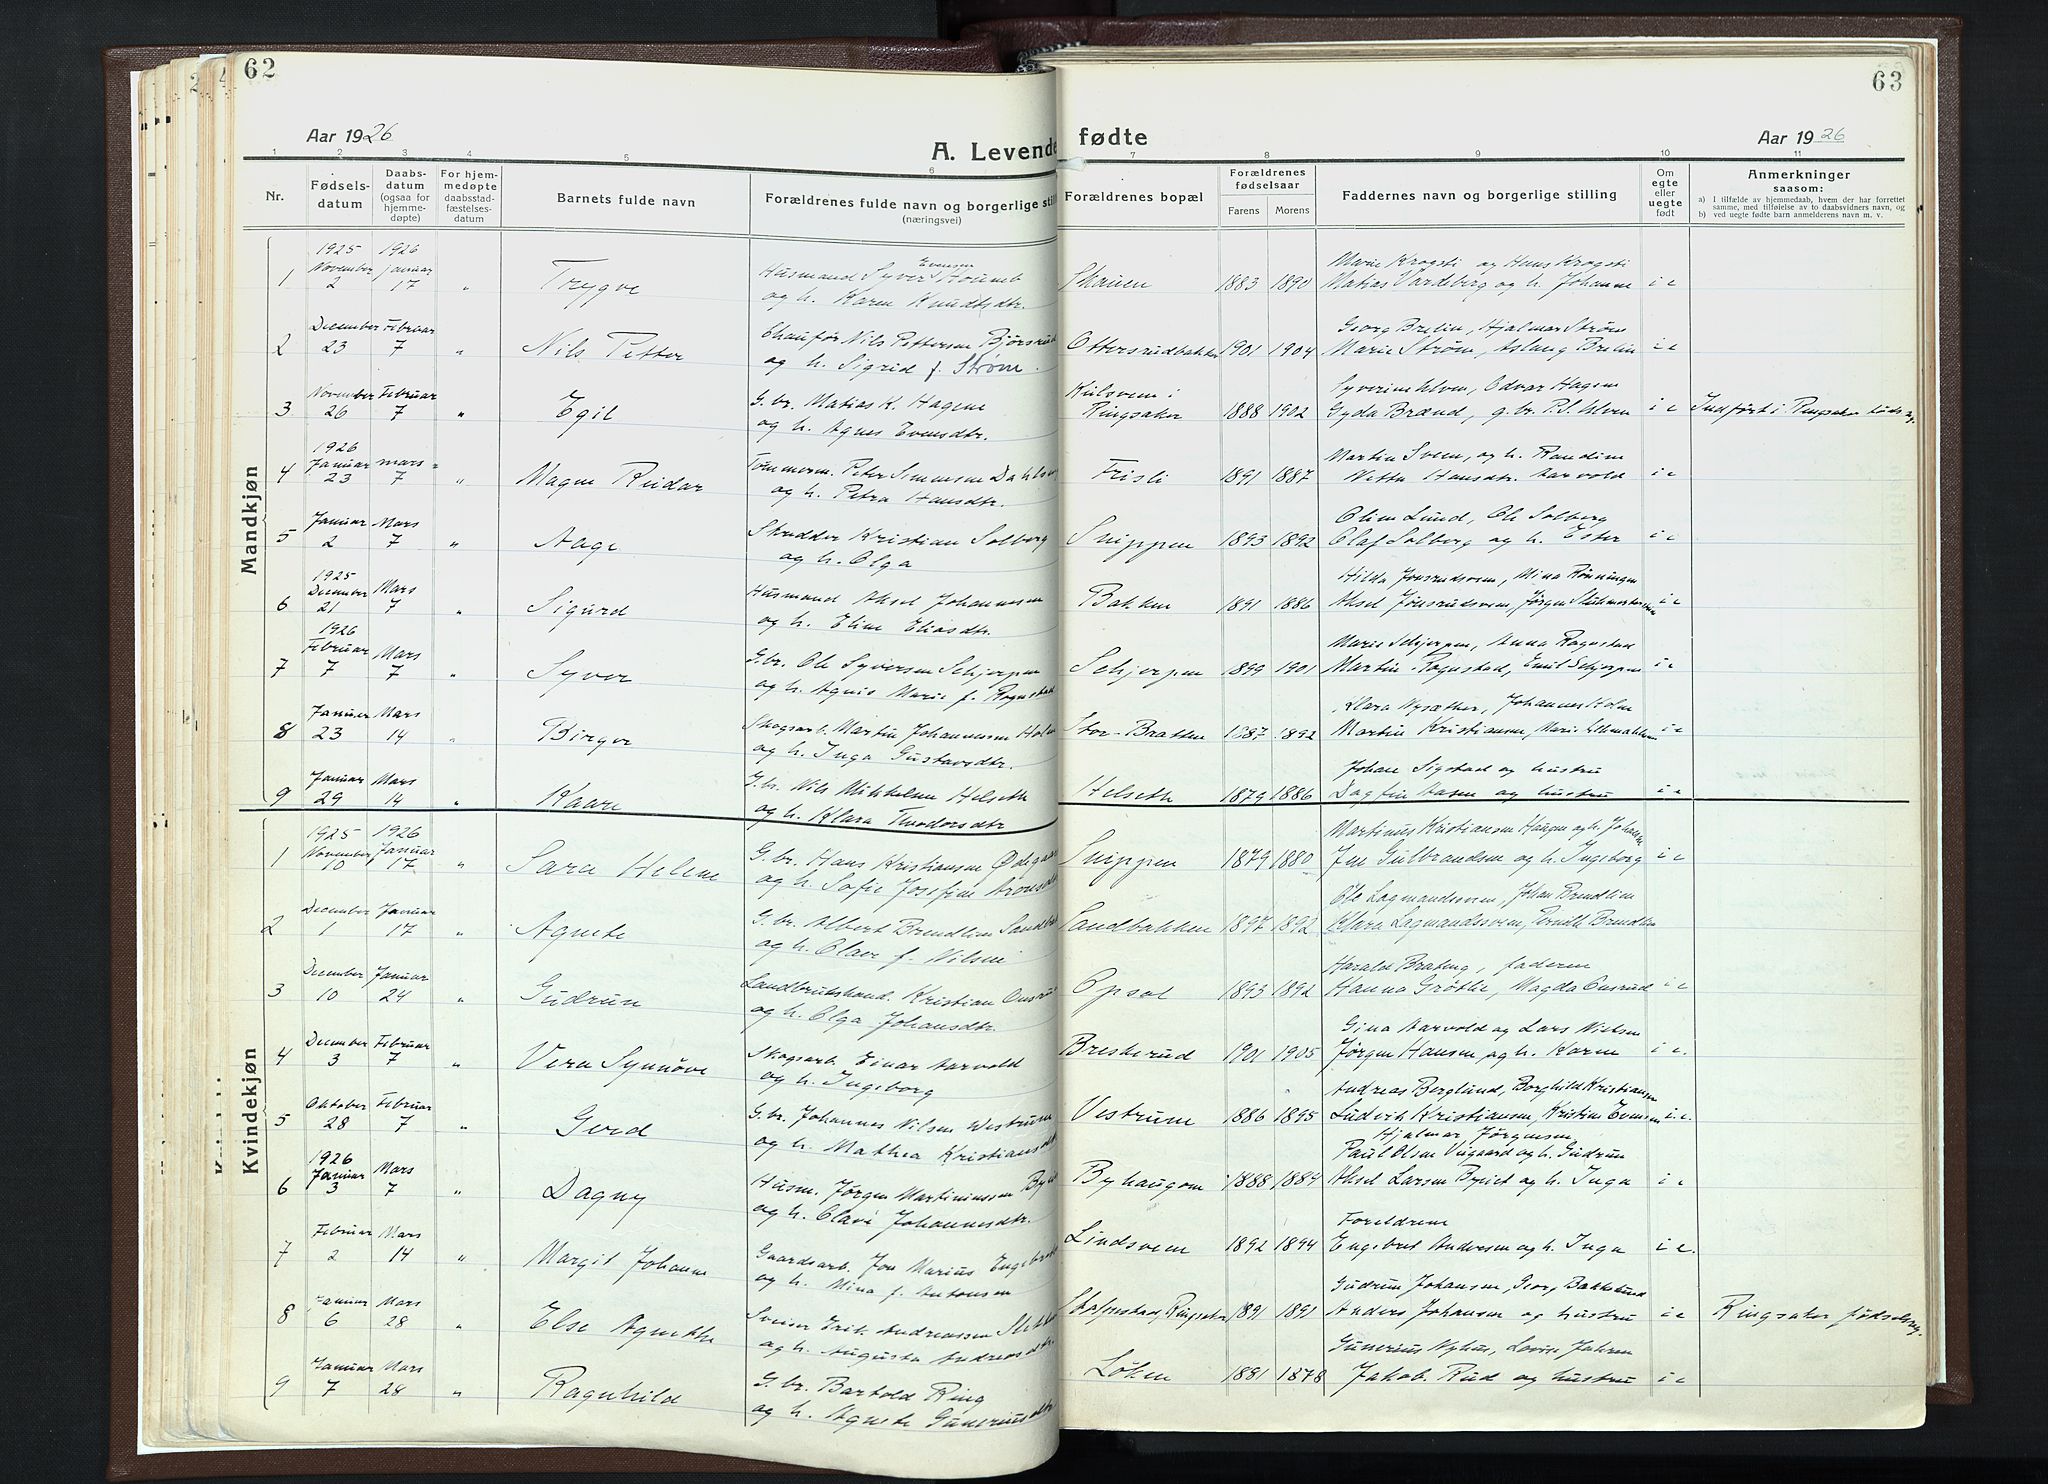 62
Aar 1926
A. Levende
1 2 3 4 5 6
Nr.
Fødsels-
datum
Daabs-
datum
(ogsaa for
hjemme-
døpte)
For hjem-
medøpte
daabsstad-
fæstelses-
datum
Barnets fulde navn
Forældrenes fulde navn og borgerlige still
(næringsvei)
Mandkjøn
1925 1926
1 November 2 Januar 17 " Trygve Husmand Syver Evensen
og h. Karen Knudtsdtr.
2 December 23 Februar 7 " Nils Petter Chaufør Nils Pettersen Bjørsrud
og h. Sigrid f. Strøm.
3 November 26 Februar 7 " Egil G. br. Matias K. Hagene
og h. Agnes Evensdtr.
1926
4 Januar 23 mars 7 " Magne Reidar Tømmerm. Peter Simensen Dahls
og h. Petra Hansdtr.
5 Januar 2 Mars 7 " Aage Skrædder Kristian Solberg
og h. Olga
1925
6 December 21 Mars 7 " Sigurd Husmand Aksel Johannesen
og h. Eline Eliasdtr.
1926
7 Februar 7 Mars 7 " Syver G. br. Ole Syversen Schjerpen
og h. Agnes Marie f. Rognstad
8 Januar 23 Mars 14 " Birger Skogsarb. Martin Johannessen Holm
og h. Inga Gustavsdtr.
9 Januar 29 Mars 14 " Kaare G. br. Nils Mikkelsen Helseth
og h. Klara Theodorsdtr
Kvindekjøn
1925 1926
1 November 10 Januar 17 " Sara Helene G. br. Hans Kristiansen
og h. Sofie Josefine
2 December 1 Januar 17 " Agnete G. br. Albert Brendlien
og h. Olave f. Nilsen
3 December 10 Januar 24 " Gudrun Kristian Onsrud
og h. Olga Johansdtr.
4 December 3 Februar 7 " Vera Synnøve Skogsarb. Einar Aarvold
og h. Ingeborg
5 Oktober 28 Februar 7 " Gerd G. br. Johannes Nilsen Westrum
og h. Mathea Kristiansdtr
1926
6 Januar 3 Mars 7 " Dagny Husm. Jørgen Martiniussen
og h. Olave Johannesdtr.
7 Februar 2 Mars 14 Margit Johanne Gaardsarb. Jon Marius
og h. Mina f. Antonsen
8 Januar 6 Mars 28 " Else Agnethe Sveiser Erik Andreassen
og h. Augusta Andreasdtr.
9 Januar 7 Mars 28 " Ragnhild G. br. Bartold Ring
og h. Agnete Guneriusdtr
63
fødte
Aar 1926
7 8 9 10 11
Forældrenes bopæl
Forældrenes
fødselsaar
Farens Morens
Faddernes navn og borgerlige stilling
Om
egte
eller
uegte
født
Anmerkninger
saasom:
a) I tilfælde av hjemmedaab, hvem der har forrettet
samme, med tilføielse av to daabsvidners navn, og
b) ved uegte fødte barn anmelderens navn m. v.
Marie Krogsti og Hans Krogsti
Skauen 1883 1890 Matias Vardeberg og h. Johanne i e
Georg Brelin, Hjalmar Strøm
Ottersrudbakken 1901 1904 Marie Strøm, Aslaug Brelin i e
Kulsveen i Syverine Ulven, Odvar Hagene
Ringsaker 1888 1902 Gyda Brænd, g. br. P. S. Ulven i e Indført i Ringsaker føds.reg.
Martin Sveen, og h. Randine
Frisli 1891 1887 Hansdtr. Aarvold i e
Oline Lund, Ole Solberg
Snippen 1893 1892 Olaf Solberg og h. Ester i e
Hilda Jønsrudsveen, Mina Rønningen
Bakken 1891 1886 Aksel Jønsrudsveen, Jørgen i e
Marie Schjerpen, Anna Rognstad
Schjerpen 1899 1901 Martin Rognstad, Emil Schjerpen i e
Klara Nysæther, Johannes Holm
Stor-Bratten 1887 1892 Martin Kristiansen, Marie i e
Johan Sigstad og hustru
Helseth 1879 1886 Dagfin Aasen og hustru i e
Martinus Kristiansen Haugen og h. Johanne
Snippen 1879 1880 Jens Gulbrandsen og h. Ingeborg i e
Ole Lagmandssveen, Johan Brendlien
Sandbakken 1897 1892 Klara Lagmandssveen, Pernille Brendlien
Harald Brateng, faderen
Opsal 1893 1892 Hanna Grøtlie, Magda Onsrud i e
Gina Aarvold og Lars Nielsen
Breskerud 1901 1905 Jørgen Hansen og h. Karen i e.
Andreas Berglund, Borghild Kristiansen
Vestrum 1886 1895 Ludvik Kristiansen, Kristine Evensen i e.
Hjalmar Jørgensen
Paul Olsen Viigaard og h. Gudrun
Byhaugen 1888 1884 Aksel Larsen og h. Inga i e
Foreldrene
Lindsveen 1892 1894 Engebret Andersen og h. Inga i e.
Gudrun Johansen, Georg Bakkelund
Stafsnstad, Ringsaker 1891 1891 Anders Johansen og hustru i e Ringsaker fødselsreg.
Gunerius Nyhus, Lovise Jahren
Løken 1881 1878 Jakob Rud og hustru i e